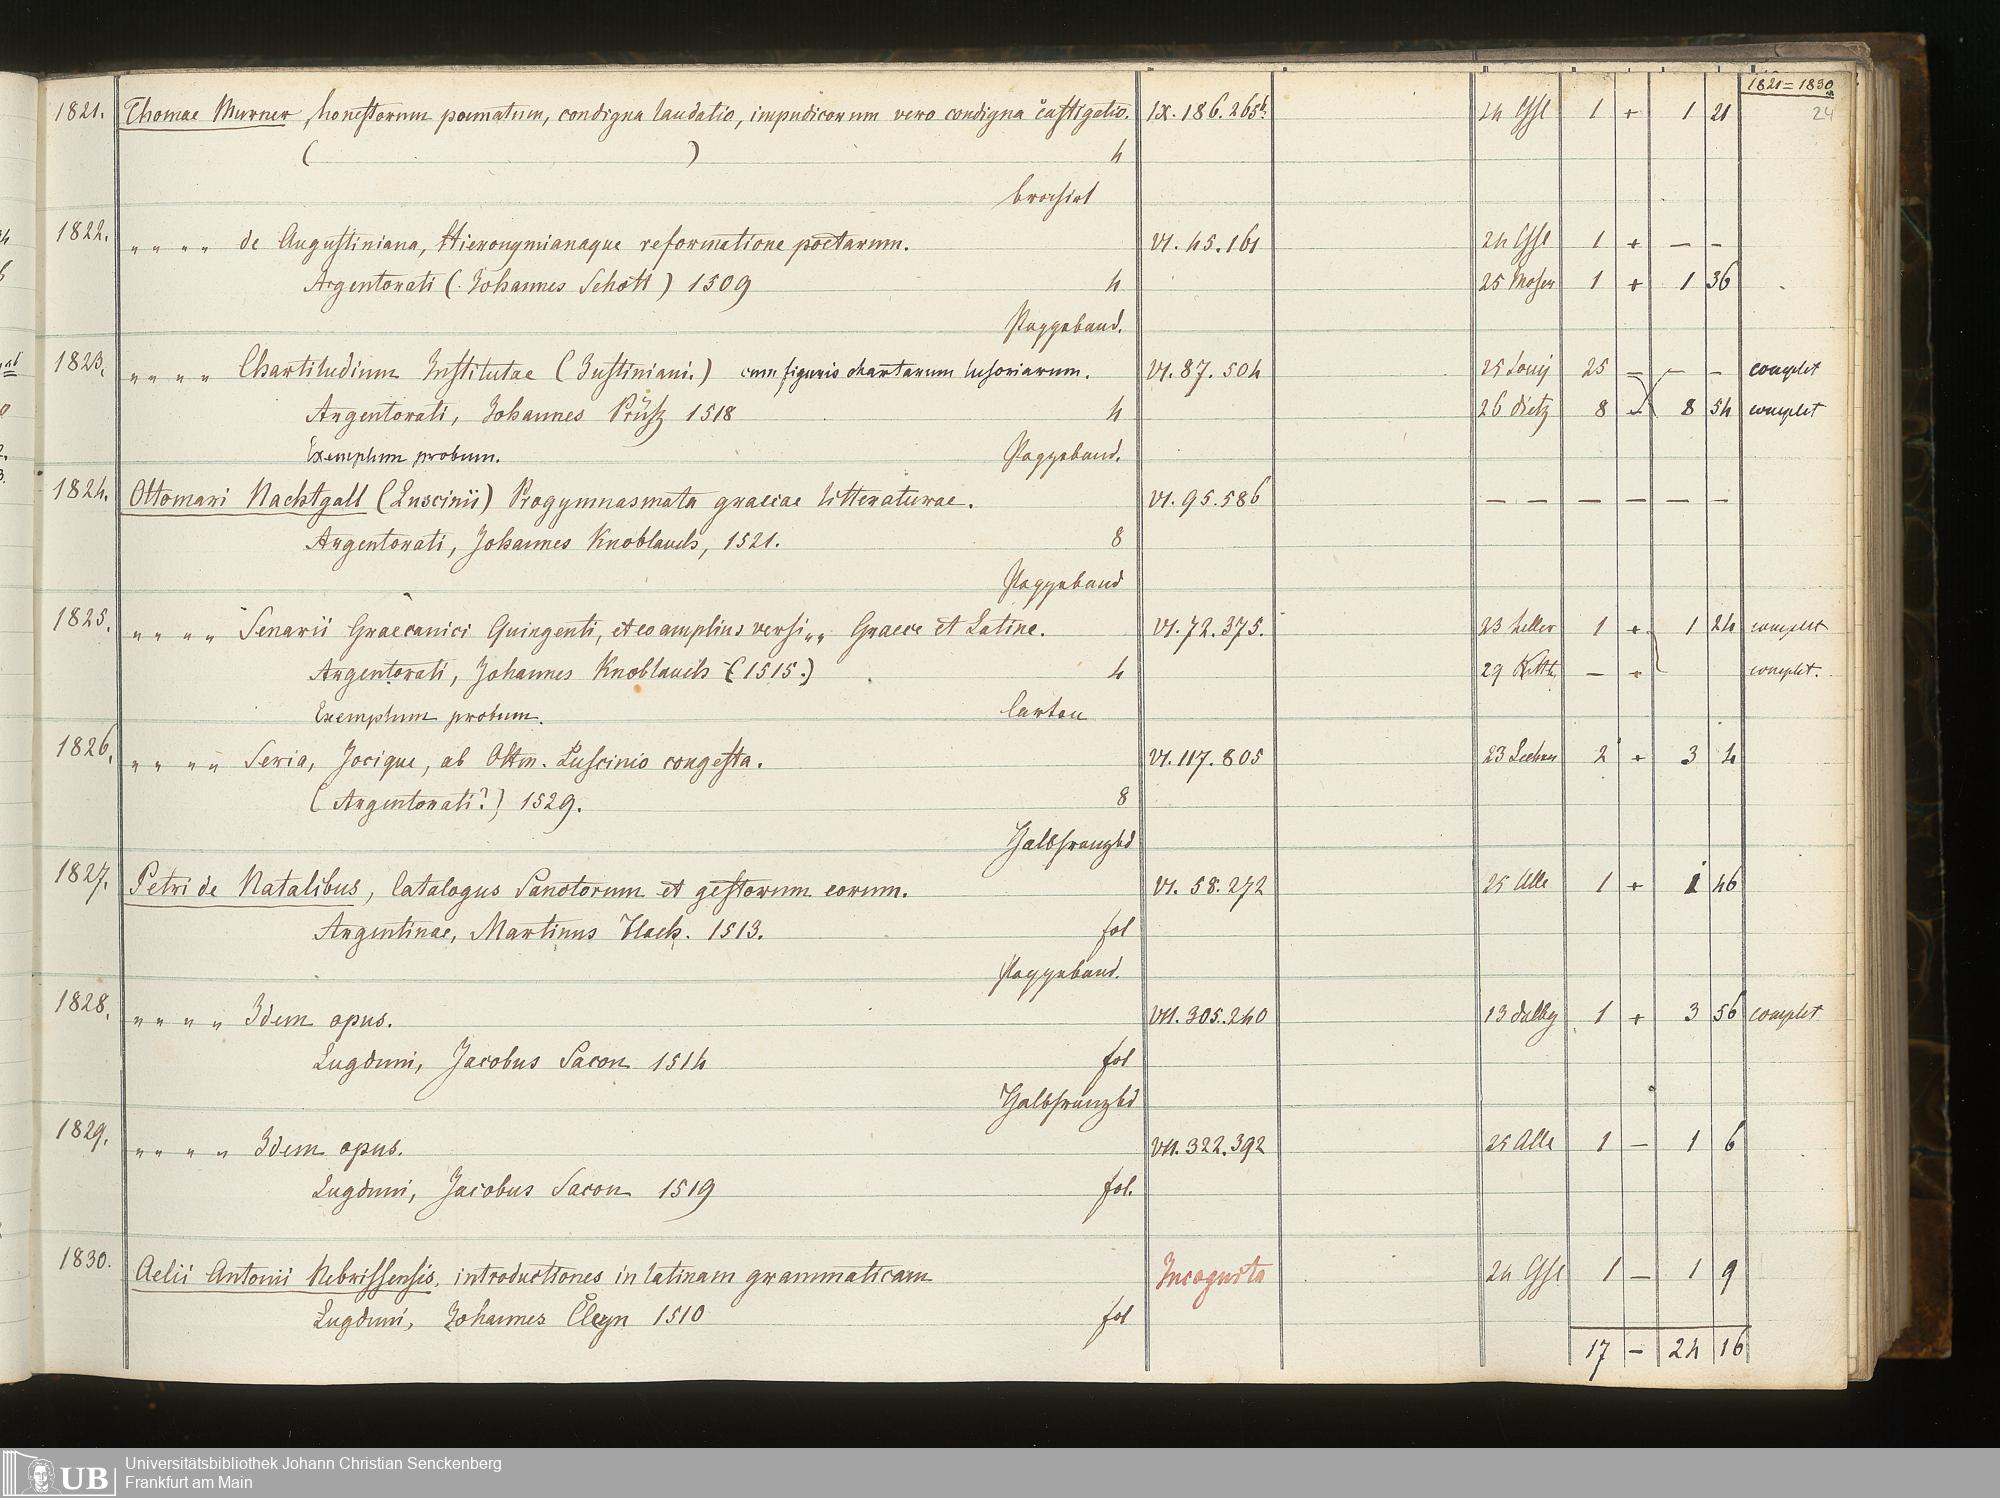 1821 = 1830
24
1821. Thomae Murner, honestorum poematum, condigna laudatio, impudicorum vero condigna castigatio. IX. 186. 265b. 24 1 + 1 21
( ) 4
brochirt
1822. " " " " de Augustiniana, Hieronymianaque reformatione poetarum. VI. 45. 161 24 1 + — —
Argentorati (Johannes Schott) 1509 4 25 Moser 1 + 1 36
Pappeband.
1823. " " " " Chartiludium Institutae (Justiniani.) cum figuris chartarum lusoriarum. VI. 87. 504 25 25 — — — complet
Argentorati, Johannes Prüß 1518 4 26 Dietz 8 — 8 54 complet
Exemplum probum. Pappeband.
1824. Ottomari Nachtgall (Luscinii) Progymnasmata graecae litteraturae. VI. 95. 586 — — — — — —
Argentorati, Johannes Knoblauch, 1521. 8
Pappeband
1825. " " " " Senarii Graecanici Quingenti, et eo amplius versi " " Graece et Latine. VI. 72. 375. 23 1 + 1 24 complet
Argentorati, Johannes Knoblauch (1515.) 4 29 — + complet.
Exemplum probum. Carton
1826. " " " " Seria, Jocique, ab Ottm. Luscinio congesta. VI. 117. 805 23 2 + 3 4
(Argentorati?) 1529. 8
Halbfranzbd
1827. Petri de Natalibus, Catalogus Sanctorum et gestorum eorum. VI. 58. 272 25 Alle 1 + 1 46
Argentinae, Martinus Flach. 1513. fol
Pappeband.
1828. " " " " Idem opus. VII. 305. 240 13 1 + 3 56 complet
Lugduni, Jacobus Sacon 1514 fol
Halbfranzbd
1829. " " " " Idem opus. VII. 322. 392 25 Alle 1 — 1 6
Lugduni, Jacobus Sacon 1519 fol.
1830. Aelii Antonii Nebrissensis, introductiones in latinam grammaticam Incognita 24 1 — 1 9
Lugduni, Johannes Cleyn 1510 fol
17 — 24 16
UB Universitätsbibliothek Johann Christian Senckenberg
Frankfurt am Main